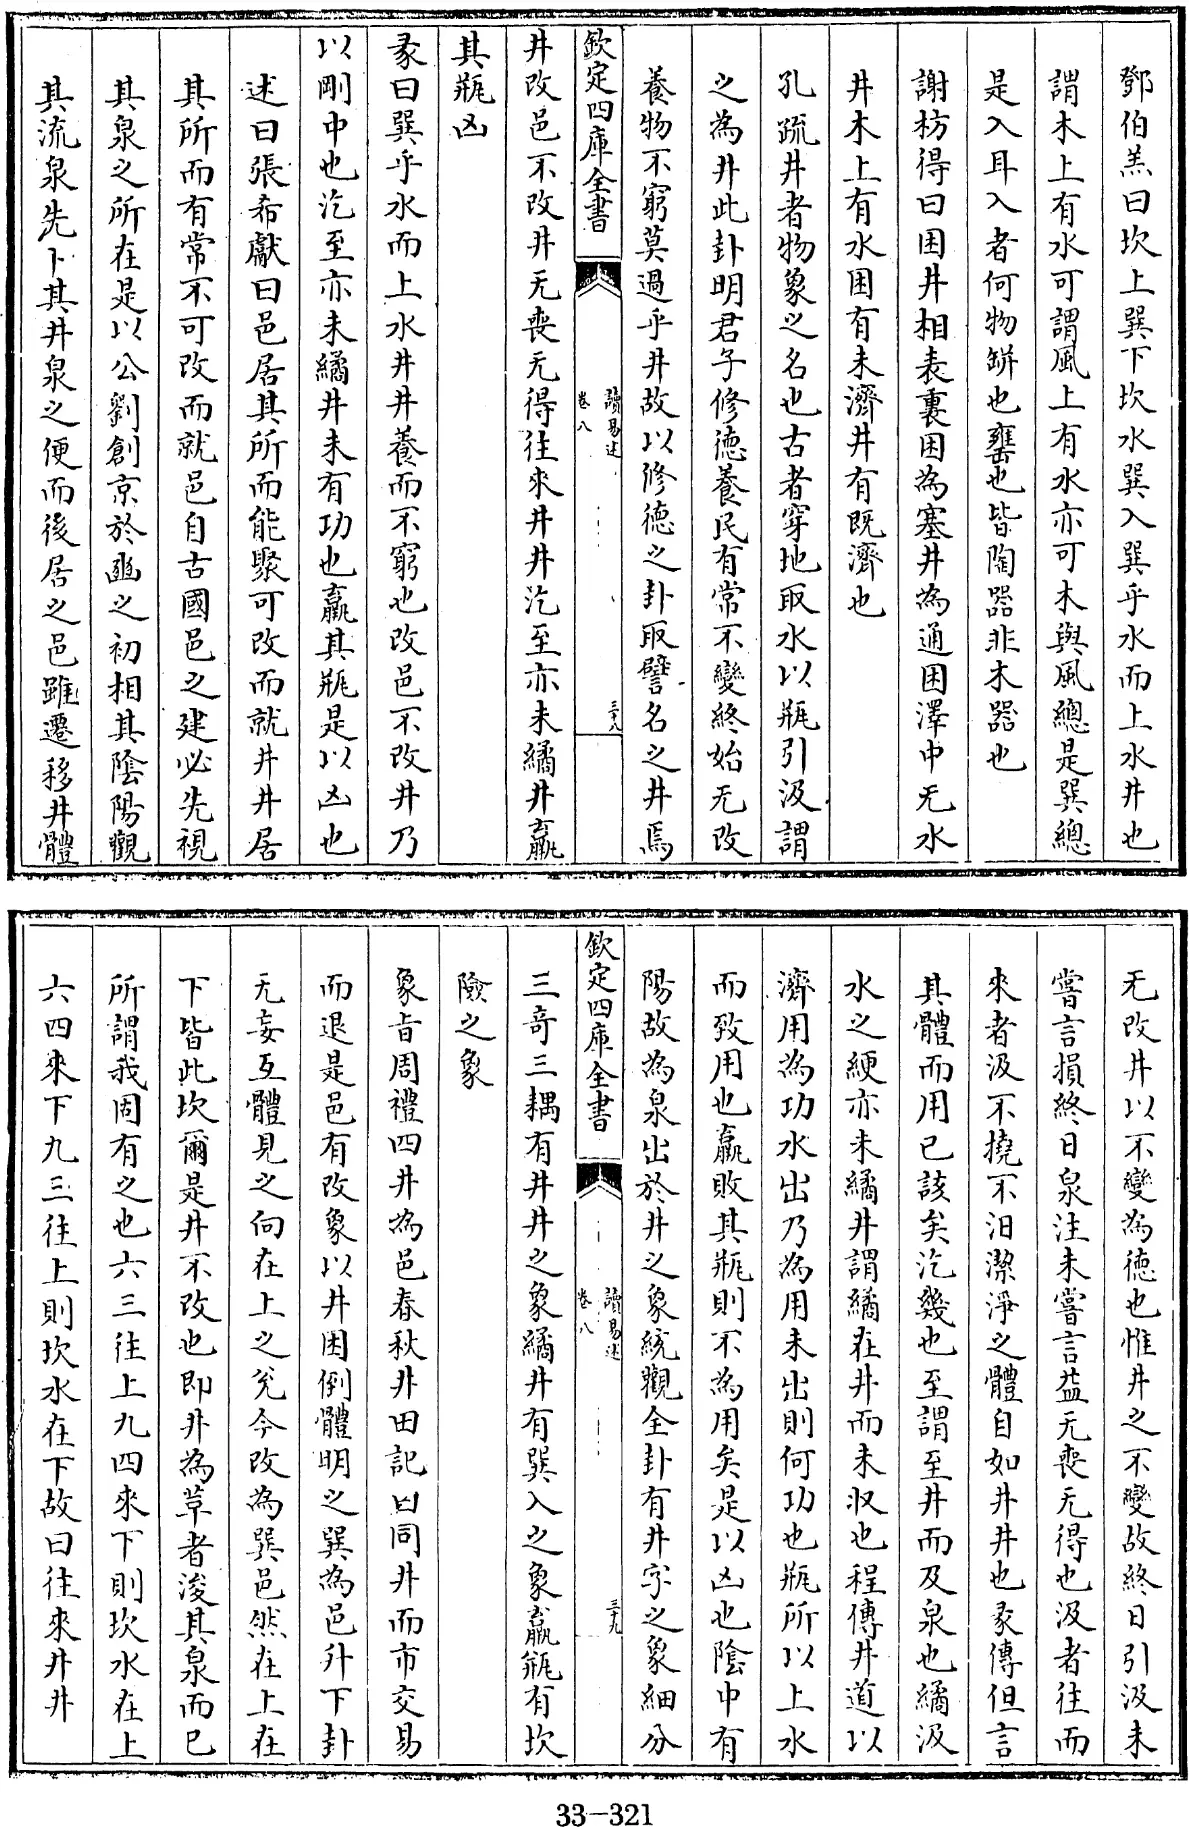 鄧伯羔曰坎上巽下坎水巽入巽乎水而上水井也
謂木上有水可謂風上有水亦可木與風總是巽總
是入耳入者何物缾也罋也皆陶器非木器也
謝枋得曰困井相表裏困為塞井為通困澤中无水
井木上有水困有未濟井有既濟也
孔疏井者物象之名也古者穿地取水以瓶引汲謂
之為井此卦明君子修德養民有常不變終始无改
養物不窮莫過乎井故以修德之卦取譬名之井焉
欽定四庫全書
讀易述
卷八
三十八
井改邑不改井无喪无得往來井井汔至亦未繘井羸
其瓶凶
彖曰巽乎水而上水井井養而不窮也改邑不改井乃
以剛中也汔至亦未繘井未有功也羸其瓶是以凶也
述曰張希獻曰邑居其所而能聚可改而就井井居
其所而有常不可改而就邑自古國邑之建必先視
其泉之所在是以公劉創京於豳之初相其陰陽觀
其流泉先卜其井泉之便而後居之邑雖遷移井體
无改井以不變為德也惟井之不變故終日引汲未
嘗言損終日泉注未嘗言益无喪无得也汲者往而
來者汲不撓不汨潔淨之體自如井井也彖傳但言
其體而用已該矣汔幾也至謂至井而及泉也繘汲
水之綆亦未繘井謂繘在井而未收也程傳井道以
濟用為功水出乃為用未出則何功也瓶所以上水
而致用也羸敗其瓶則不為用矣是以凶也陰中有
陽故為泉出於井之象統觀全卦有井字之象細分
欽定四庫全書
讀易述
卷八
三十九
三奇三耦有井井之象繘井有巽入之象羸瓶有坎
險之象
象旨周禮四井為邑春秋井田記曰同井而市交易
而退是邑有改象以井困倒體明之巽為邑升下卦
无妄互體見之向在上之兊今改為巽邑然在上在
下皆此坎爾是井不改也即井為草者浚其泉而已
所謂我固有之也六三往上九四來下則坎水在上
六四來下九三往上則坎水在下故曰往來井井
33-321